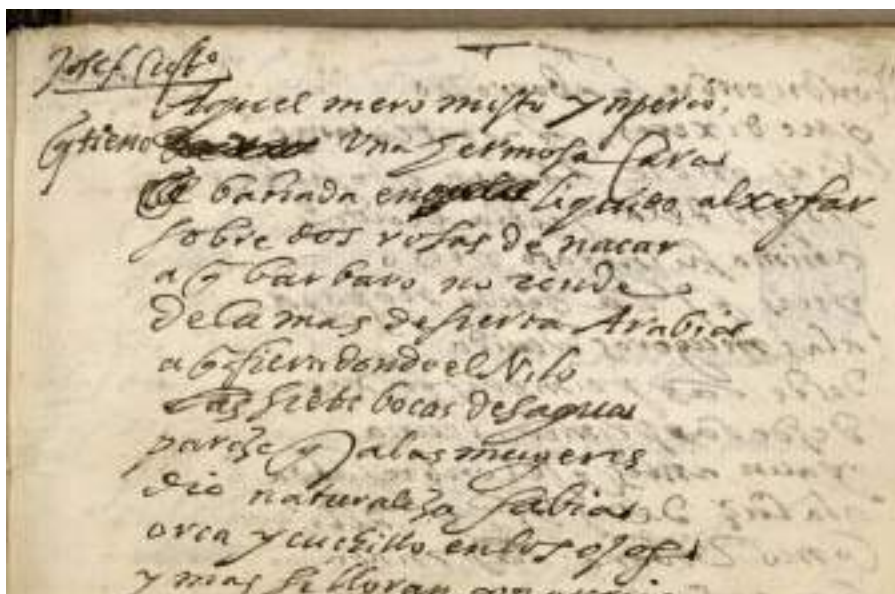 Aquel mero misto ymperio,
q tiene una hermosa cara
bañada en liquido alxofar
sobre dos rosas de nacar
a q barbaro no rinde
de la mas desierta Arabia
a q fiera donde el Nilo
las siete bocas desagua
pareze q a las mugeres
dio naturaleza sabia
orca y cuchillo en los ojos
y mas si lloran con